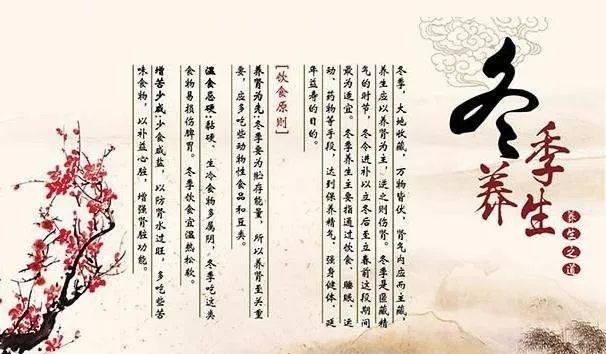 冬季养生
养生之道
冬季，大地收藏，万物皆伏，肾气内应而主藏，
养生应以养肾为主，逆之则伤肾。冬季是匿藏精
气的时节，冬令进补以立冬后至立春前这段期间
最为适宜。冬季养生主要指通过饮食、睡眠、运
动、药物等手段，达到保养精气、强身健体、延
年益寿的目的。
[饮食原则]
养肾为先:冬季要为贮存能量，所以养肾至关重
要，应多吃些动物性食品和豆类。
温食忌硬:黏硬、生冷食物多属阴，冬季吃这类
食物易损伤脾胃。冬季饮食宜温热松软。
增苦少咸:少食咸盐，以防肾水过旺，多吃些苦
味食物，以补益心脏，增强肾脏功能。